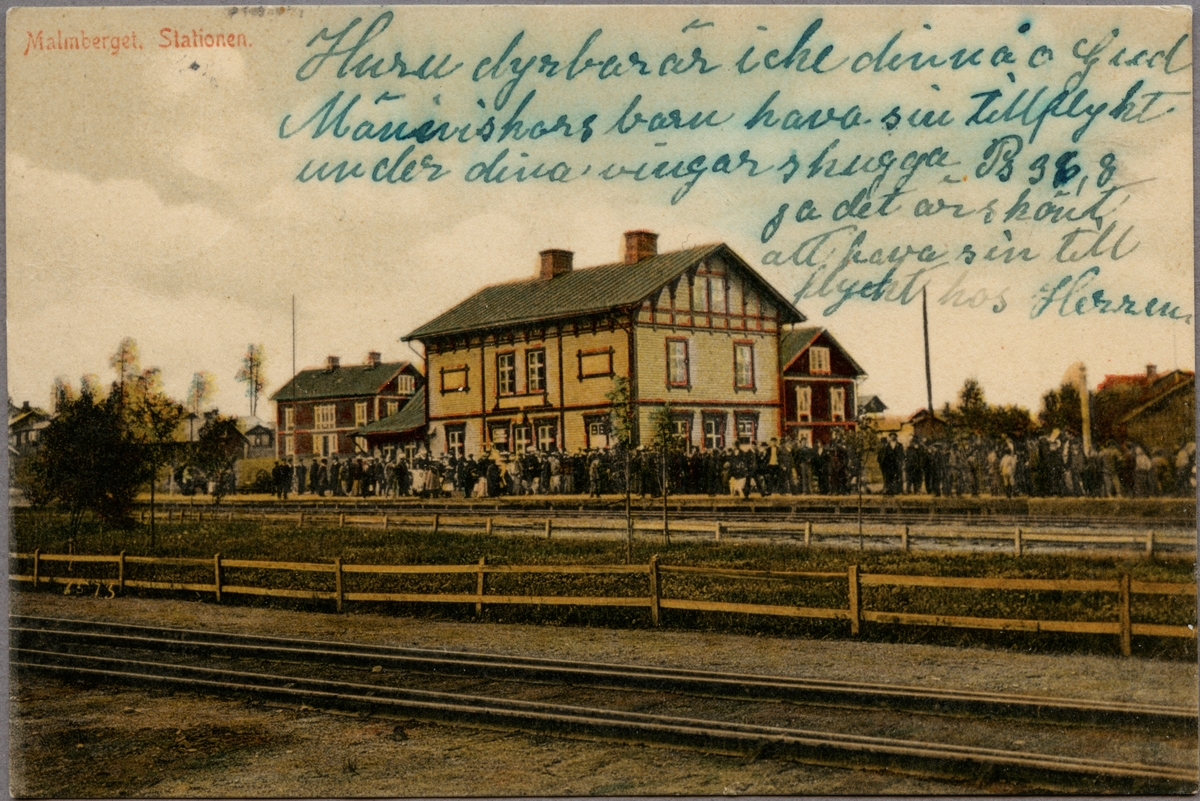 Malmberget. Stationen.
Huru dyrbar är icke din nå o Gud
Människors barn hava sin tillflykt
under dina vingars skugga Ps 36,8
ja det är skönt
att hava sin till
flyckt hos Herren.
6575